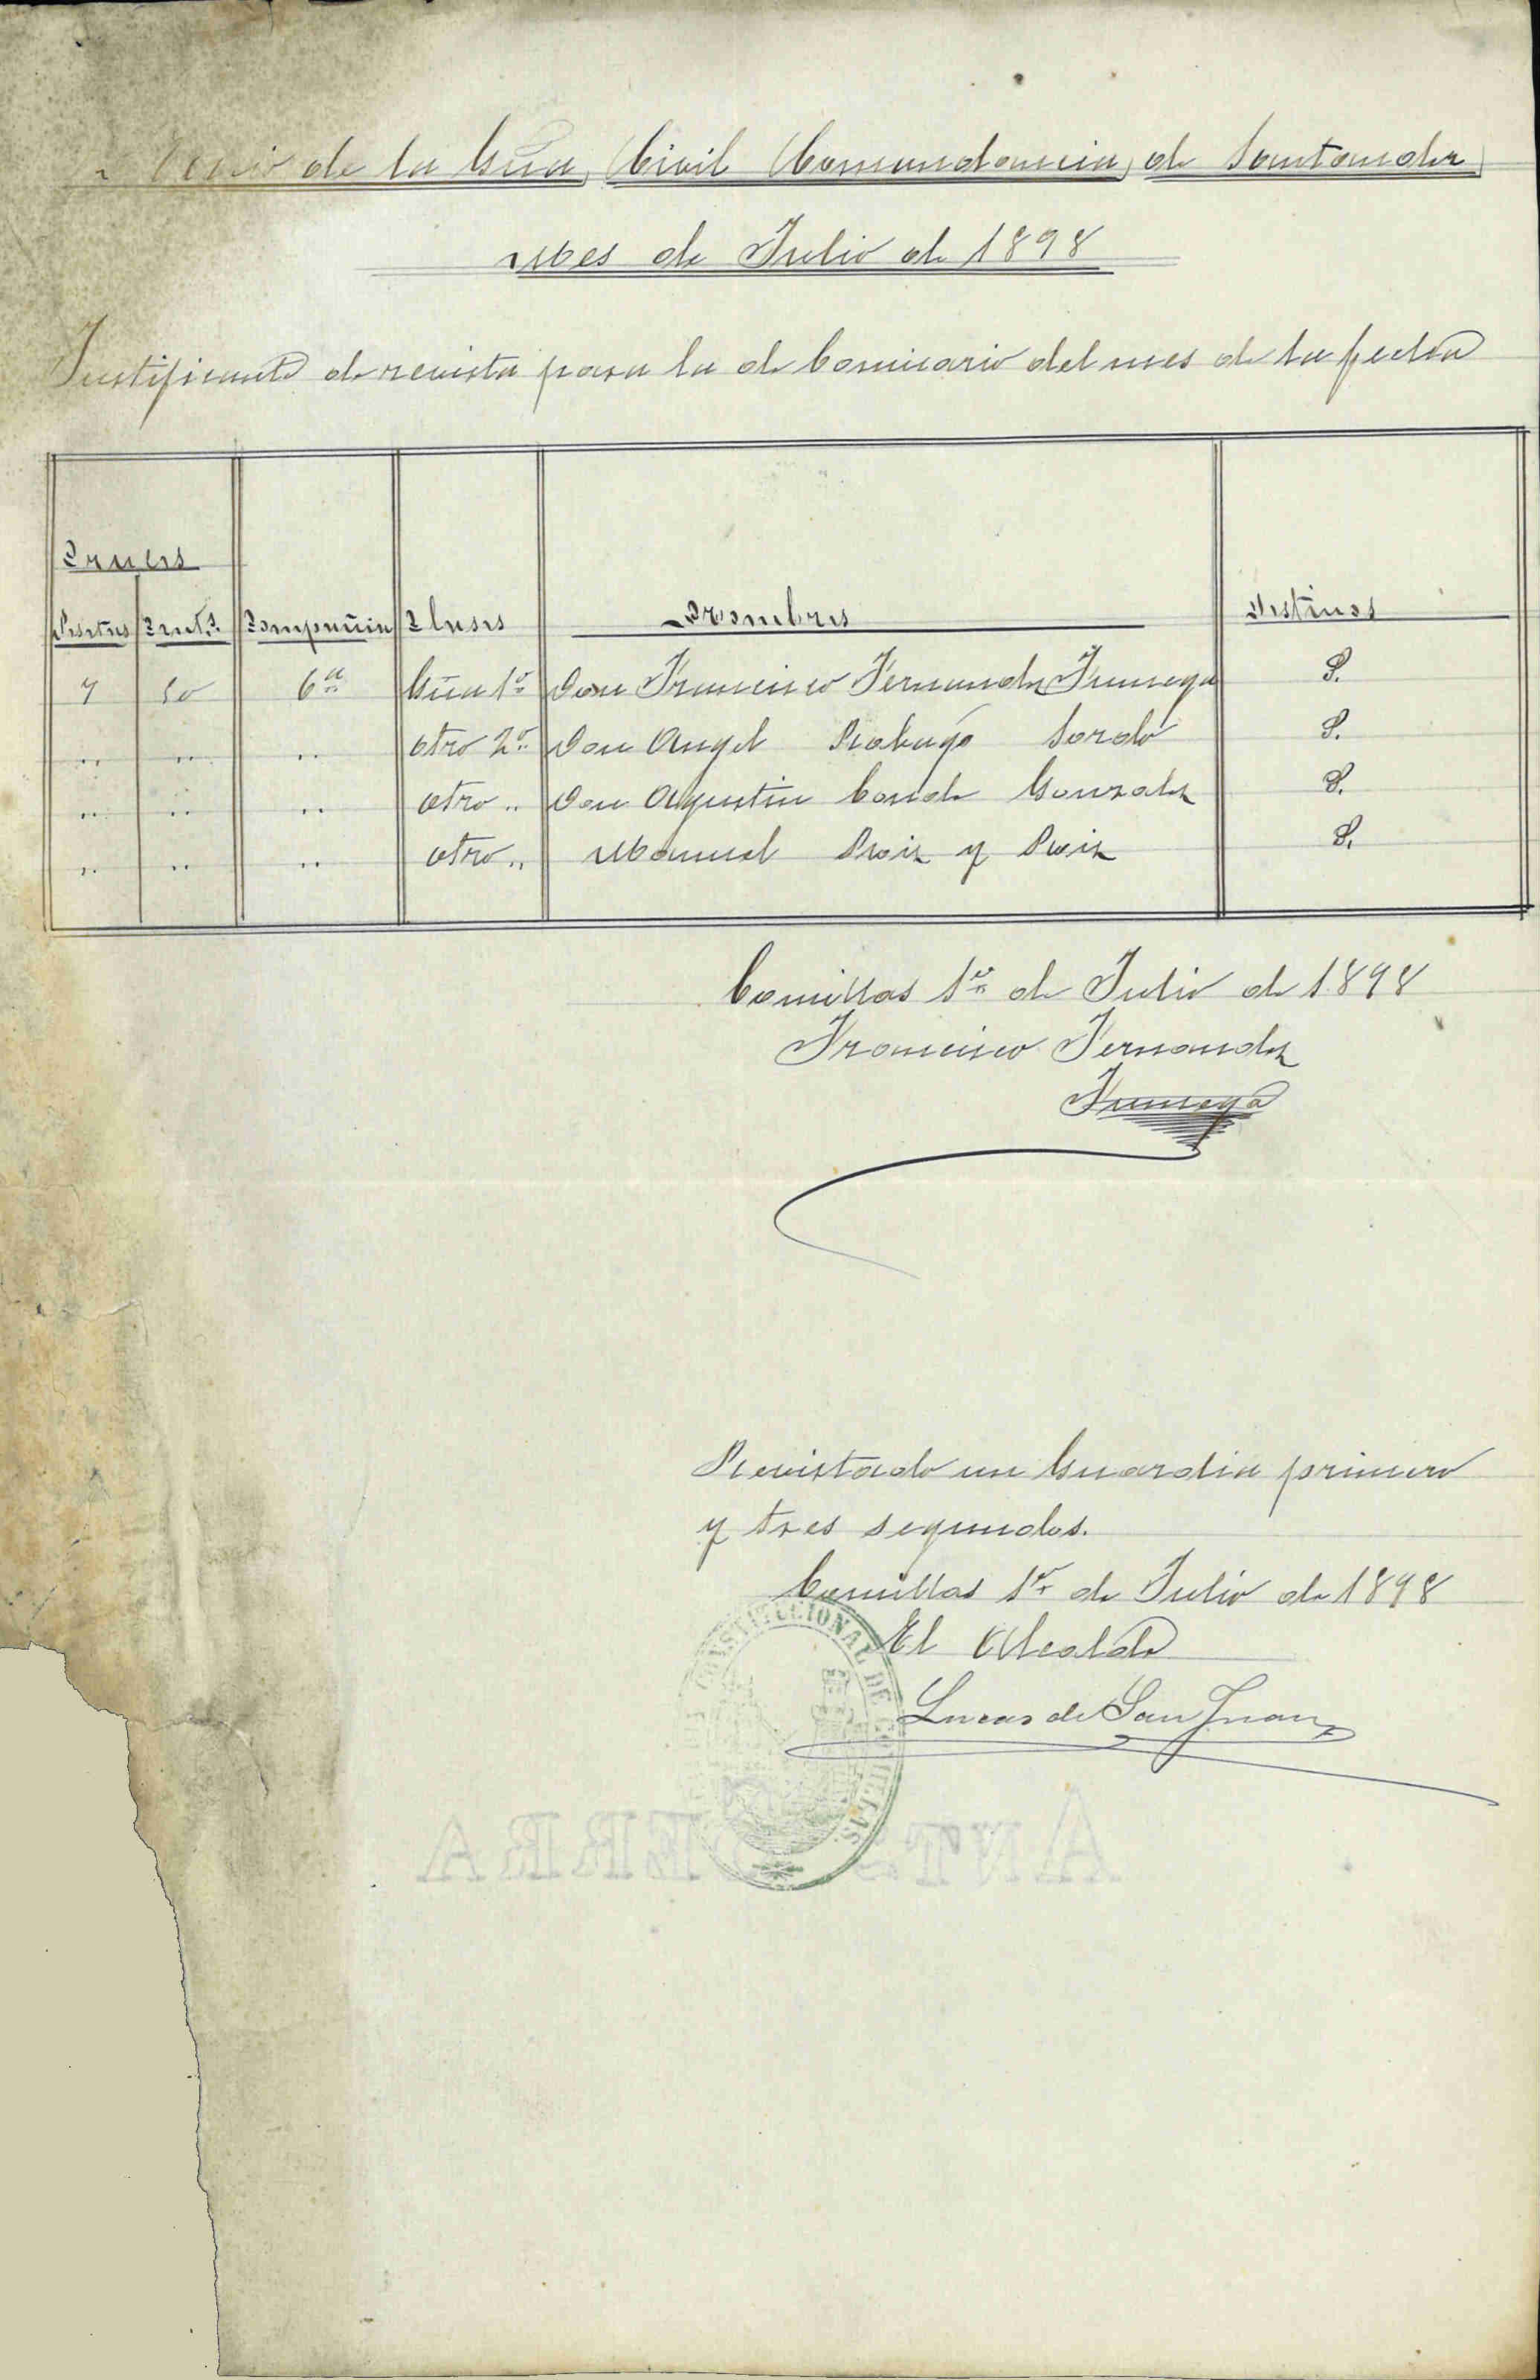 de la Gũa Civil Comandancia de Santander
Mes de Julio de 1898
Justificante de revista para la de Comisario del mes de la fecha
Cruces
Pesetas Cent.s Compañia Clases Nombres Destinos
7 50 6ª Gũa 1º Don Francisco Fernandez Fumega P.
.. .. .. otro 2º Don Angel Rabago Sordo P.
.. .. .. otro .. Don Agustin Conde Gonzalez P.
.. .. .. otro .. Manuel Ruiz y Ruiz P.
Comillas 1º de Julio de 1898
Francisco Fernandez
Fumega
Revistado un Guardia primero
y tres segundos.
Comillas 1º de Julio de 1898
El Alcalde
Lucas de San Juan
CONSTITUCIONAL DE COMILLAS.